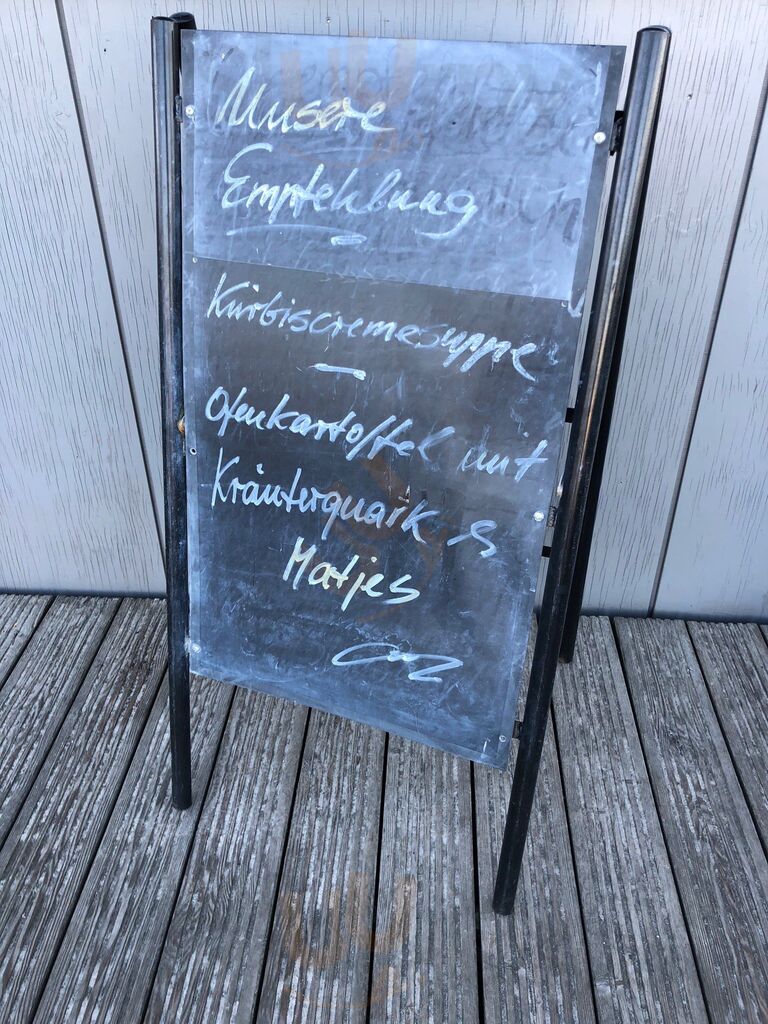 Unsere
Empfehlung
Kürbiscremesuppe
—
Ofenkartoffel mit
Kräuterquark &
Matjes